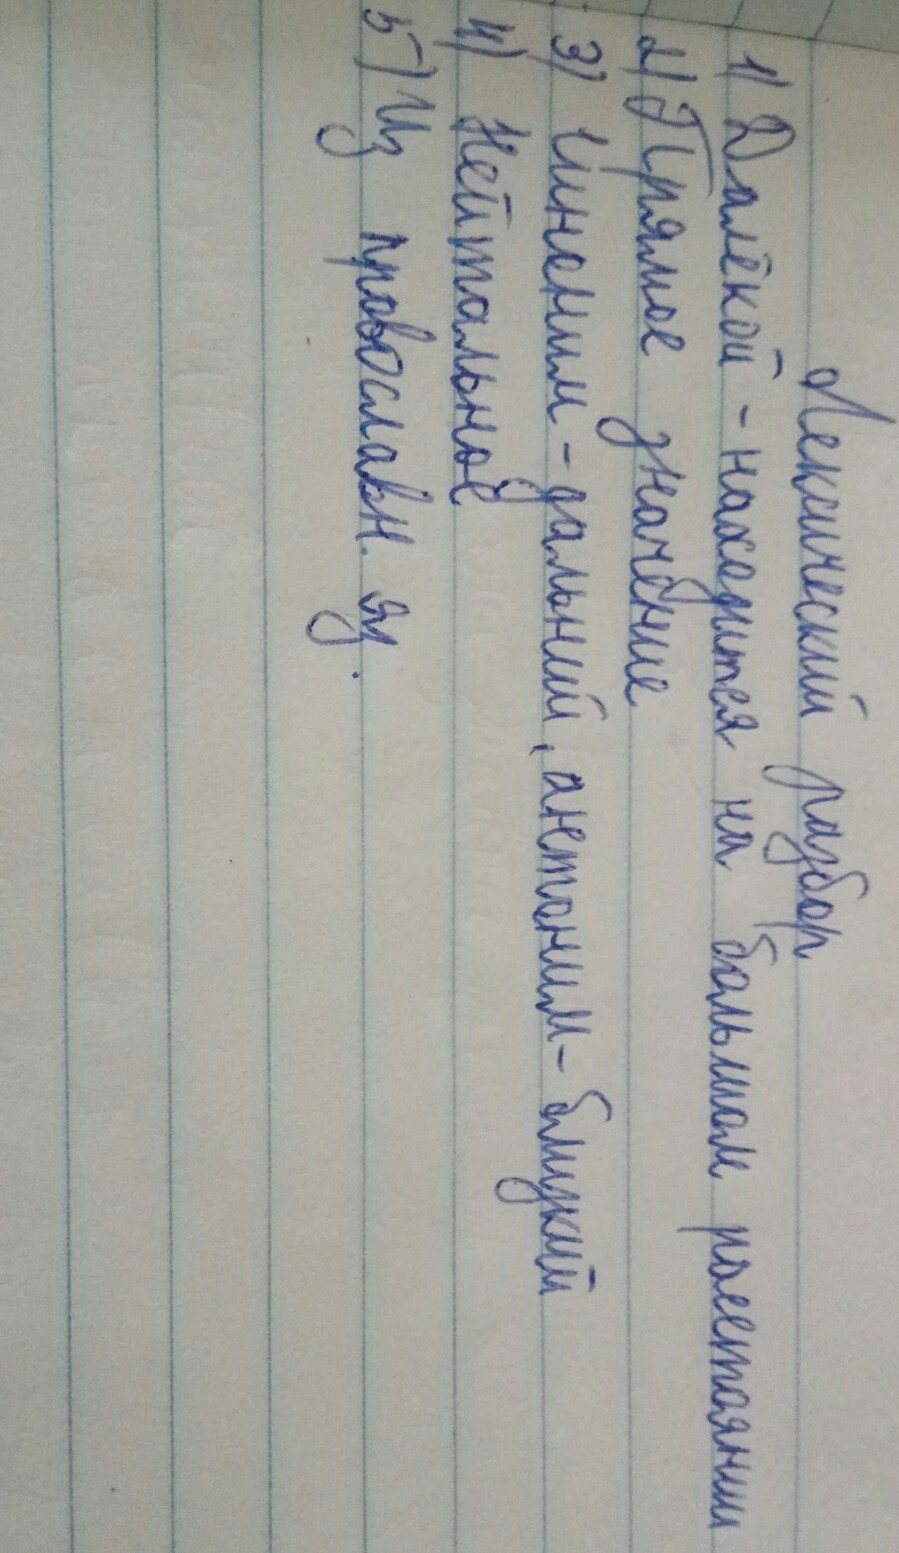 Лексический разбор
1) Далёкой - находится на большом росстоянии
2) Прямое значение
3) Синоним - дальний, антоним - близкий
4) Нейтальное
5) Из провославн. яз.